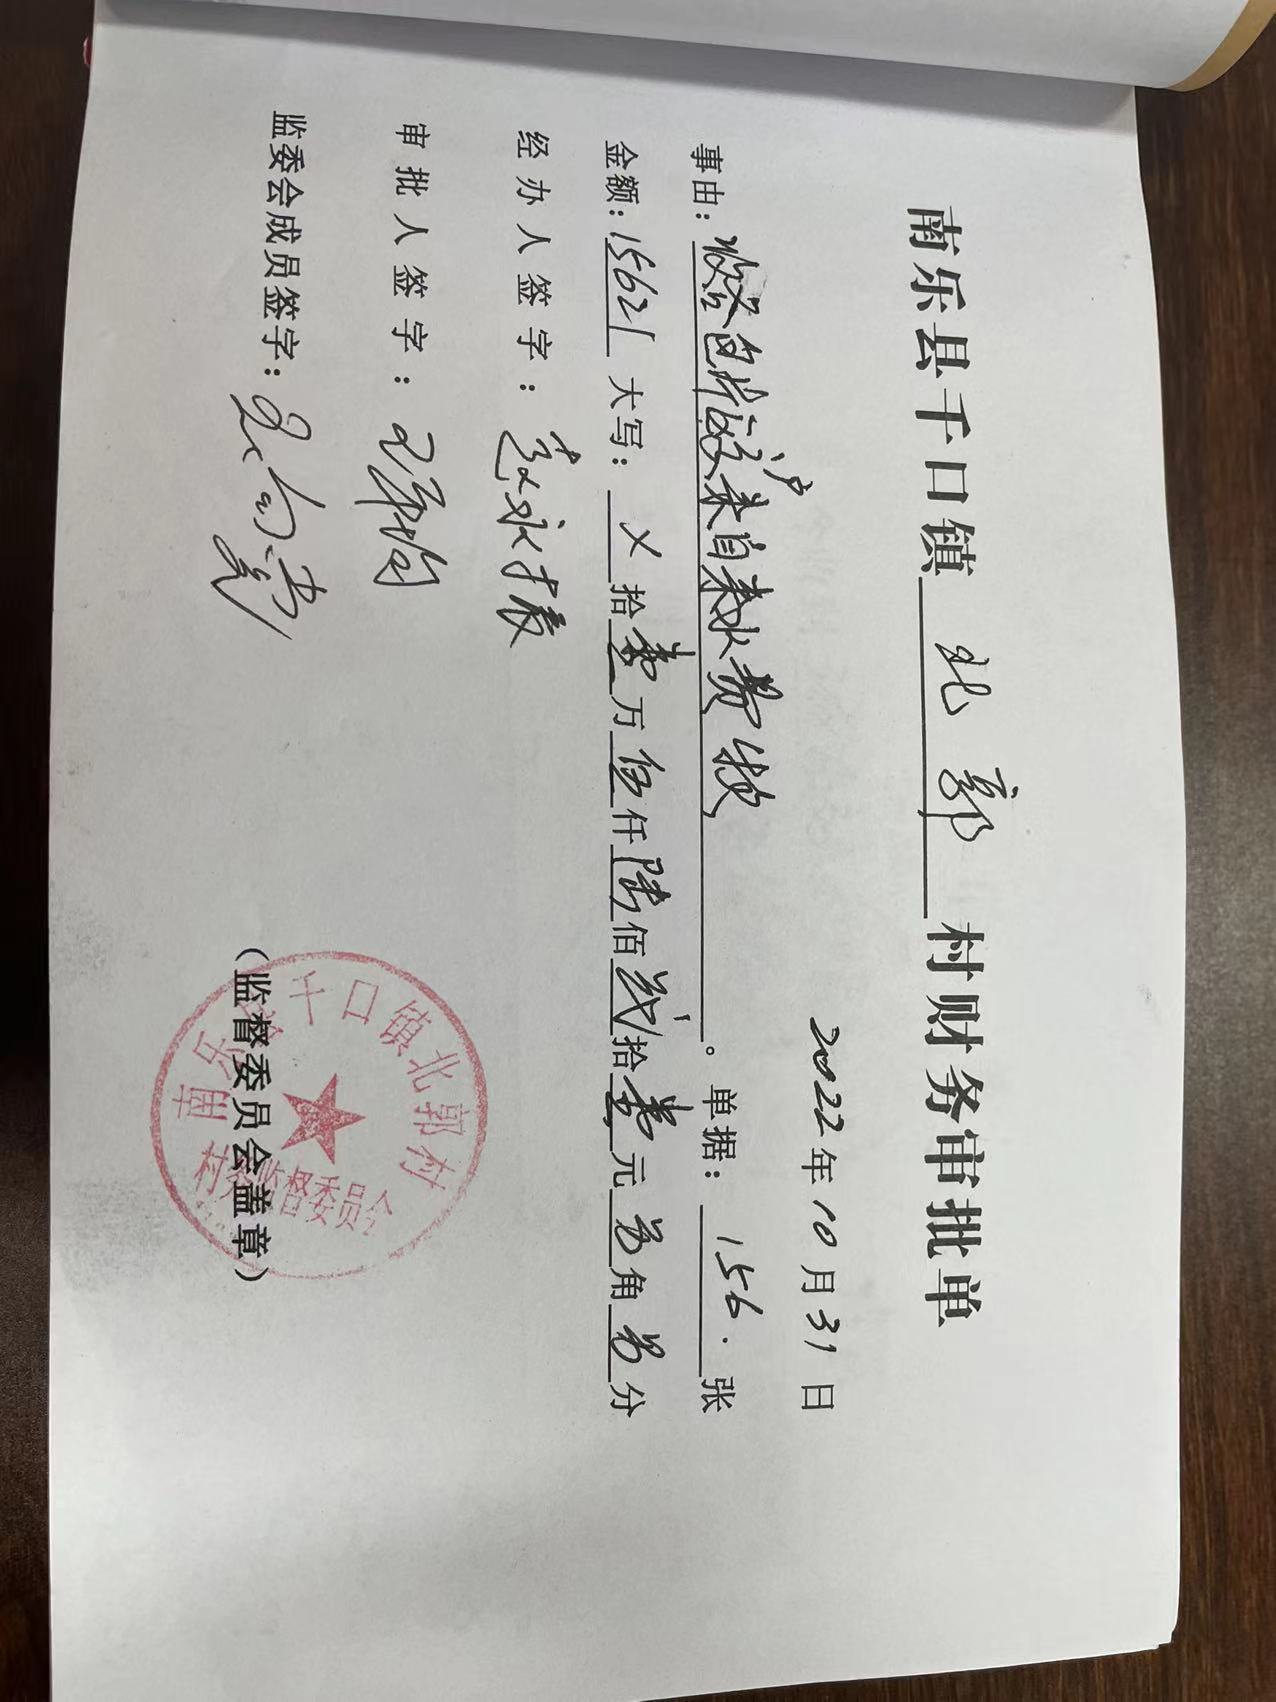 南乐县千口镇 北郭 村财务审批单
2022年10月31日
事由：收 户来自来水费款。单据：156.张
金额：15621 大写：X拾壹万伍仟陆佰贰拾壹元另角另分
经办人签字：
审批人签字：
监委会成员签字：
（监督委员会盖章）
南乐县千口镇北郭村
村务监督委员会